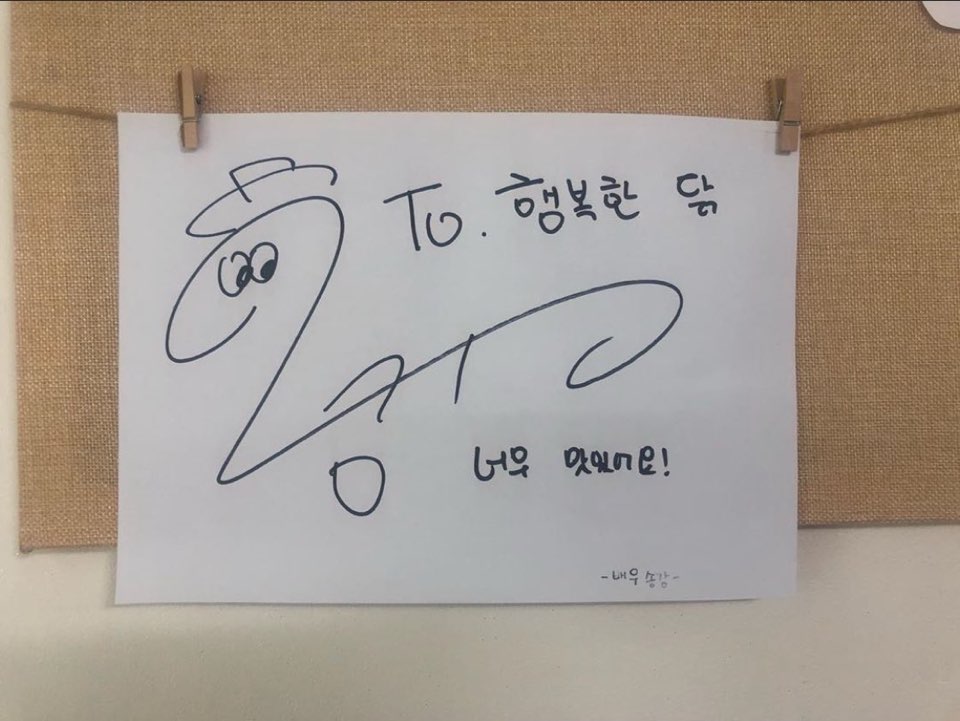 To. 행복한 닭
너무 맛있어요!
-배우 송강-